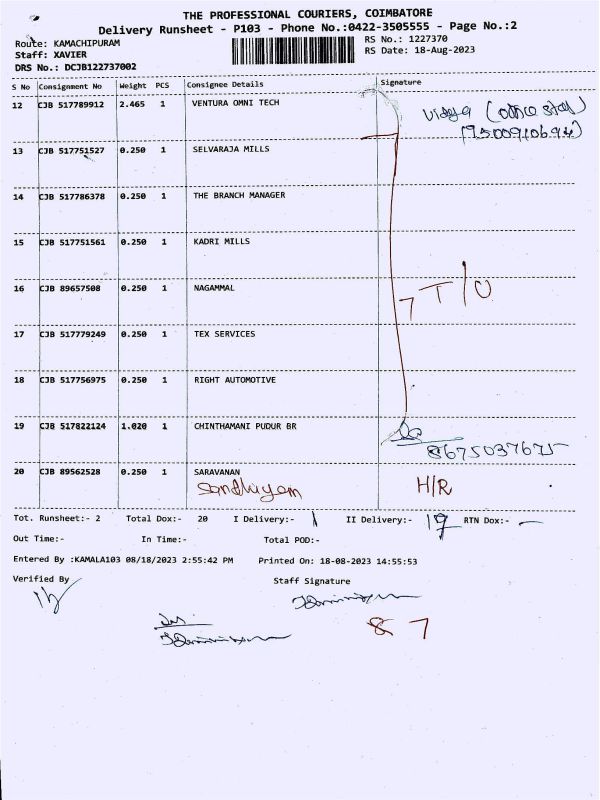 THE PROFESSIONAL COURIERS, COIMBATORE
Delivery Runsheet - P103 - Phone No.:0422-3505555 - Page No.:2
Route: KAMACHIPURAM
RS No.: 1227370
Staff: XAVIER
RS Date: 18-Aug-2023
DRS No.: DCJB122737002
S No Consignment No Weight PCS Consignee Details Signature
12 CJB 517789912 2.465 1 VENTURA OMNI TECH
13 CJB 517751527 0.250 1 SELVARAJA MILLS
14 CJB 517786378 0.250 1 THE BRANCH MANAGER
15 CJB 517751561 0.250 1 KADRI MILLS
16 CJB 89657508 0.250 1 NAGAMMAL
7 T/O
17 CJB 517779249 0.250 1 TEX SERVICES
18 CJB 517756975 0.250 1 RIGHT AUTOMOTIVE
19 CJB 517822124 1.020 1 CHINTHAMANI PUDUR BR
8675037675
20 CJB 89562528 0.250 1 SARAVANAN
H/R
Tot. Runsheet:- 2 Total Dox:- 20 I Delivery:- 1 II Delivery:- 19 RTN Dox:- -
Out Time:- In Time:- Total POD:-
Entered By :KAMALA103 08/18/2023 2:55:42 PM Printed On: 18-08-2023 14:55:53
Verified By Staff Signature
8 7